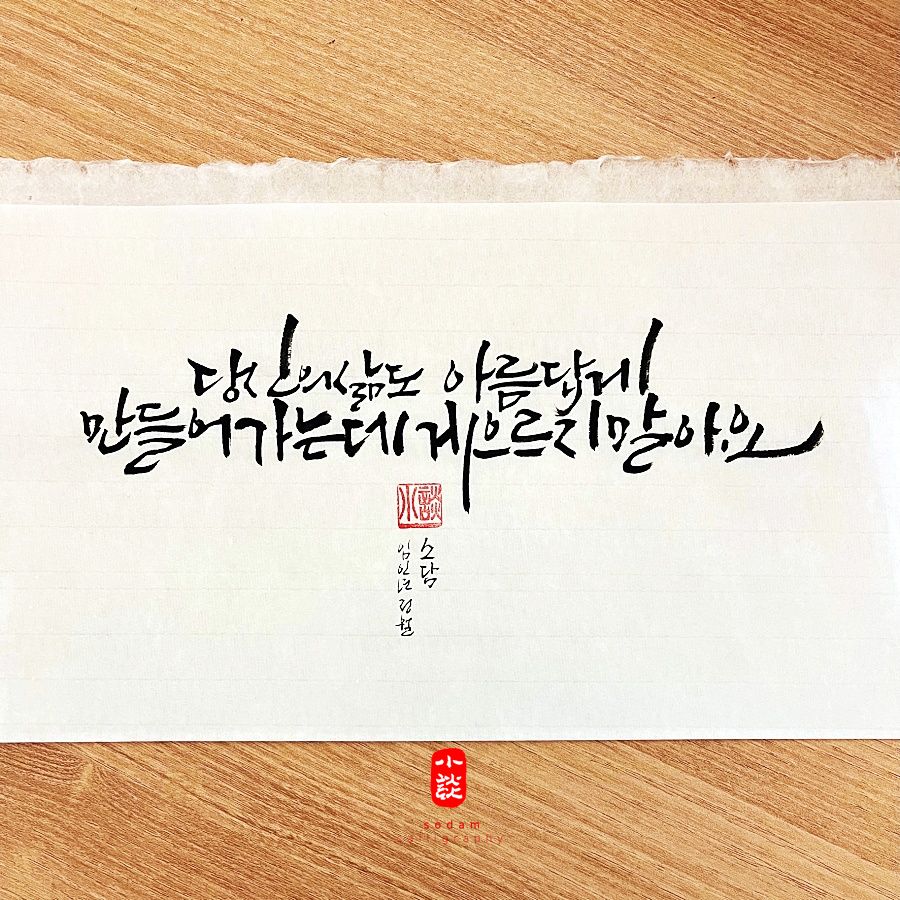 당신의 삶도 아름답게
만들어가는데 게으르지 말아요
小談
소담
임인년 정월
小談
sodam
calligraphy